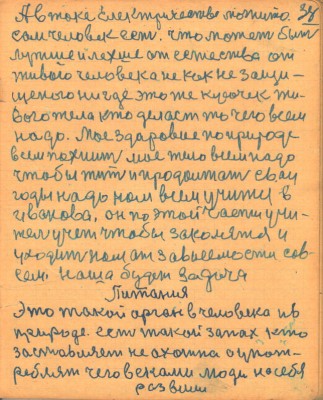 А в токе Електричестве пожито. 33
сам человек ест. что может быт
лутше и легше от естества от
живого человека не как не защи-
щеного нигде это же кусочек жи-
вого тела кто делает то чего всем
надо. Мое здаровие по природе
всем пахнит мое тело всем надо
чтобы жит и продолжат сваи
годы надо нам всем учитца в
Иванова, он по этой части учи-
тел учет чтобы закалятся и
уходит нам от зависемости сов-
сем. наша будет задача
Питания
Это такой орган в человека и в
природе. ест такой запах кто
заставляет не охотна а упот-
реблят чего вками люди на себя
развили